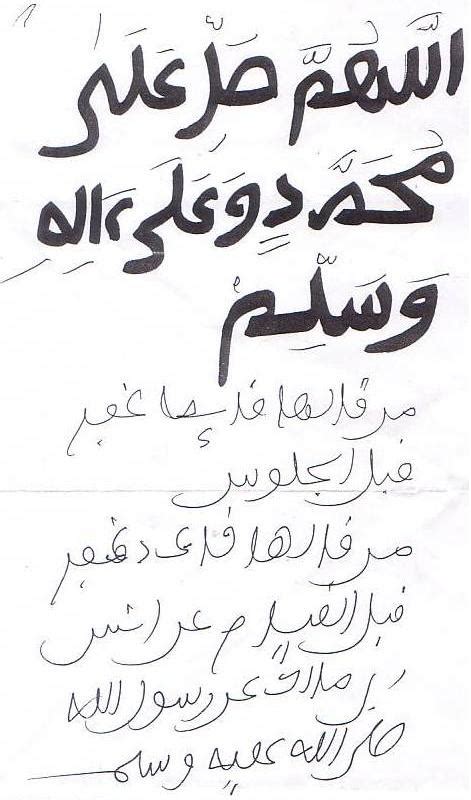 اللَّهُمَّ صَلِّ عَلَى
مُحَمَّدٍ وَعَلَى ءَالِهِ
وَسَلِّمْ
من قالها قائما غفر
قبل الجلوس
من قالها قاعدا غفر
قبل القيام عن انس
بن مالك عن رسول الله
صلى الله عليه وسلم